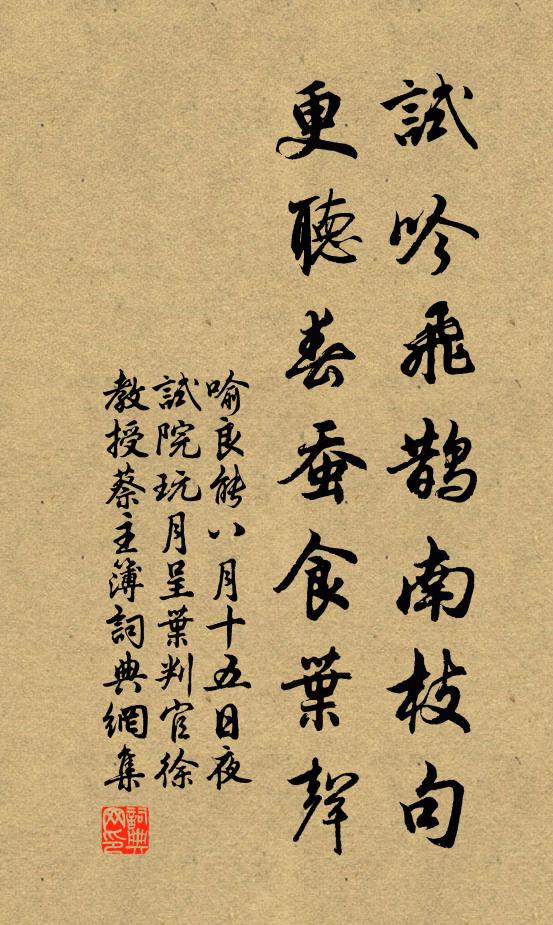 試吟飛鵲南枝句
更聽春蚕食葉聲
喻良能八月十五日夜
試院玩月呈葉判官徐
教授蔡主簿詞典網集
詞典网印